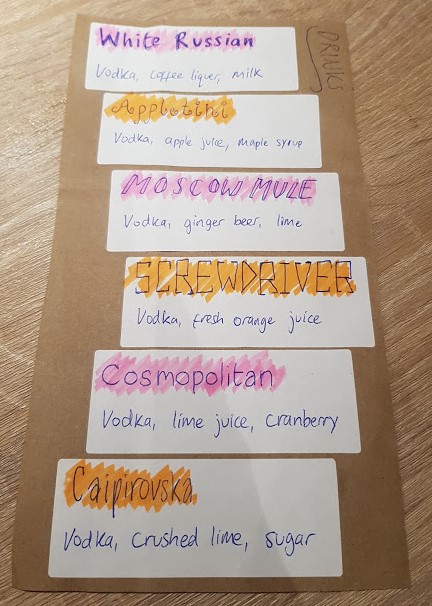 DRINKS
White Russian
Vodka, coffee liquer, milk
Appletini
Vodka, apple juice, maple syrup
MOSCOW MULE
Vodka, ginger beer, lime
SCREWDRIVER
Vodka, fresh orange juice
Cosmopolitan
Vodka, lime juice, cranberry
Caipirovska
Vodka, crushed lime, sugar